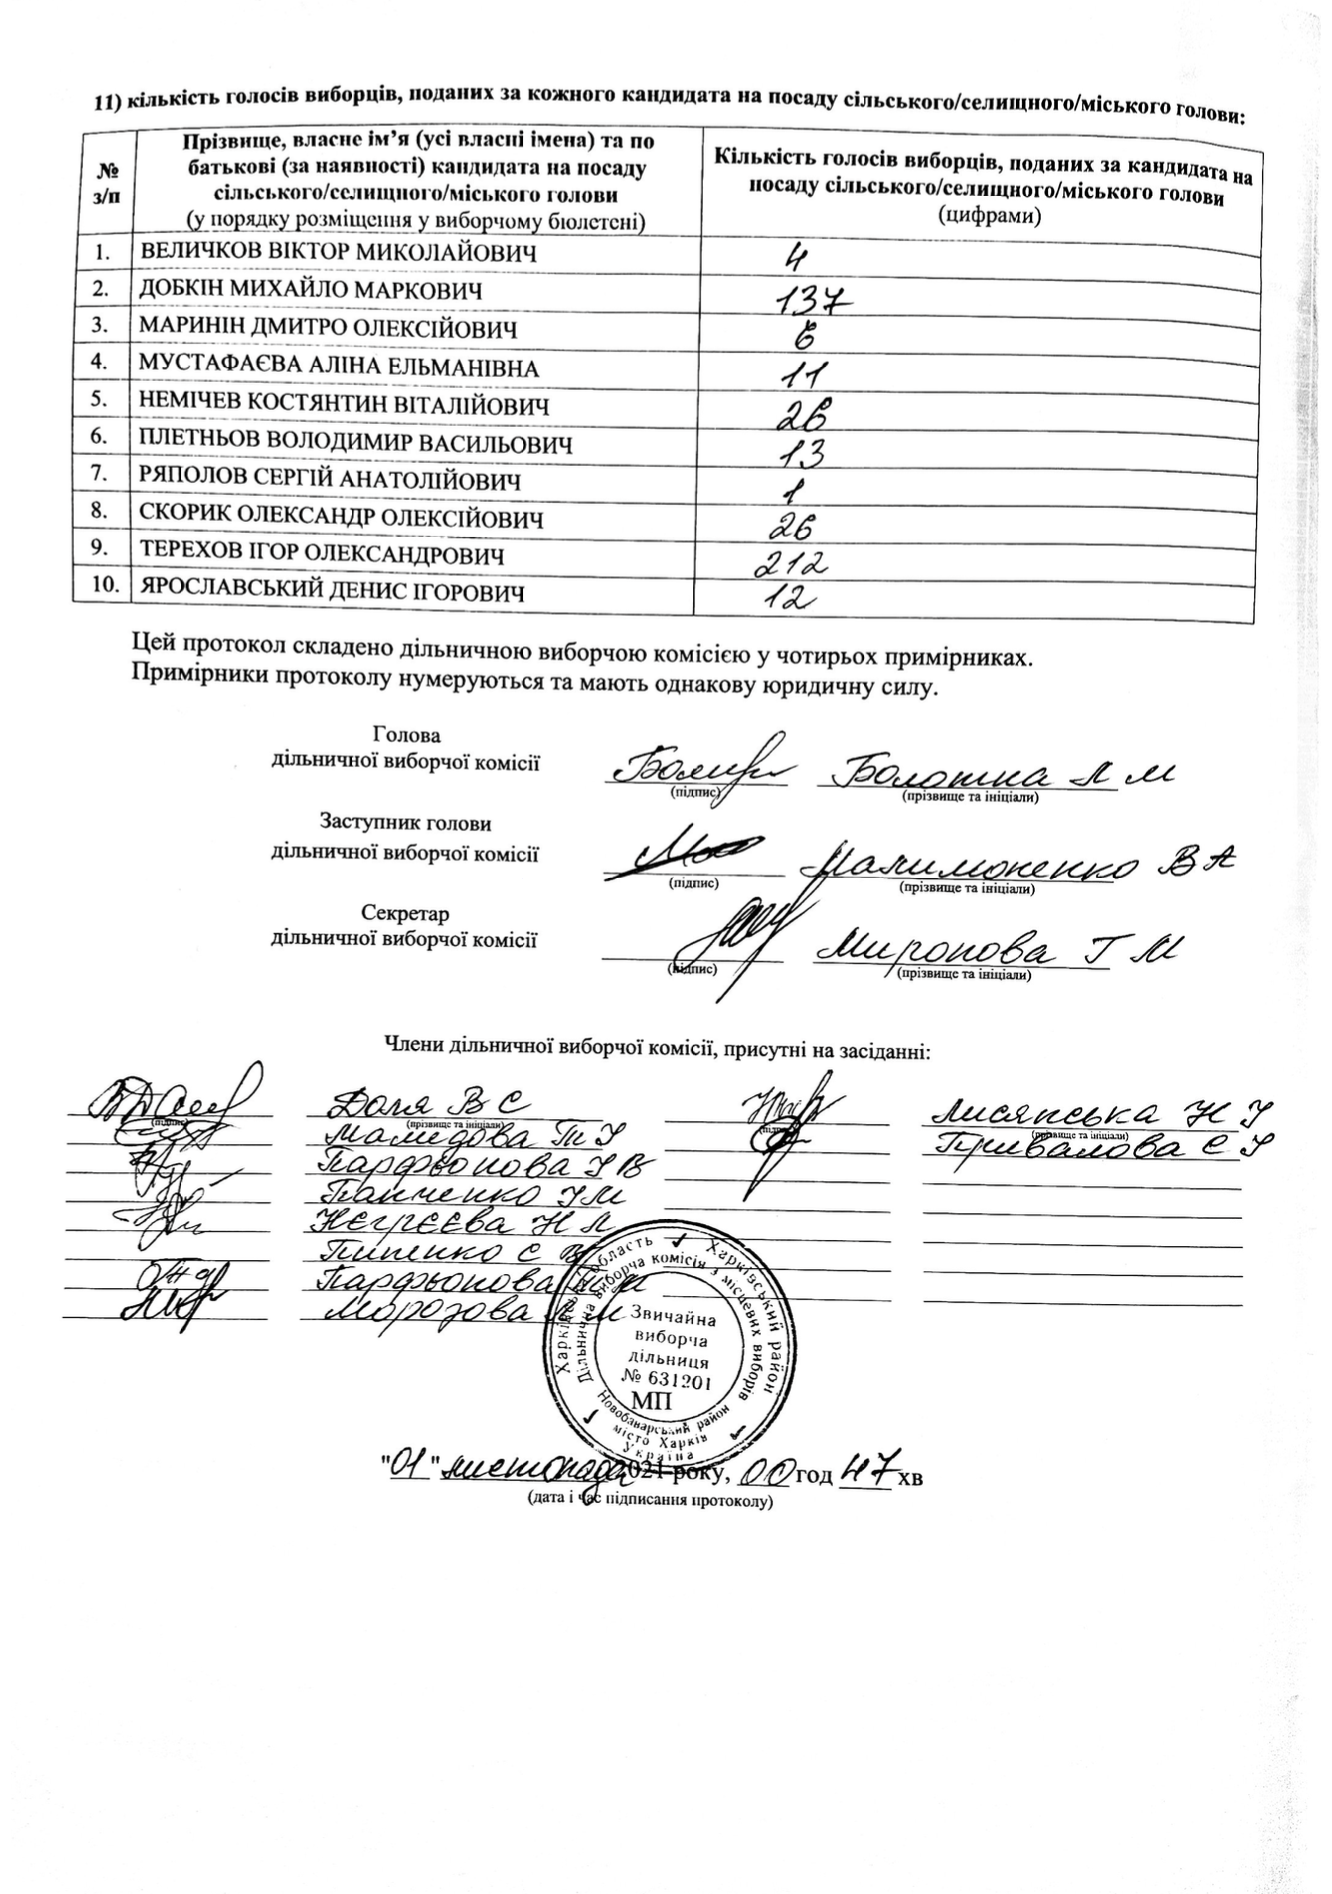 11) кількість голосів виборців, поданих за кожного кандидата на посаду сільського/селищного/міського голови:
№ з/п
Прізвище, власне ім’я (усі власні імена) та по
батькові (за наявності) кандидата на посаду
сільського/селищного/міського голови
(у порядку розміщення у виборчому бюлетені)
Кількість голосів виборців, поданих за кандидата на
посаду сільського/селищного/міського голови
(цифрами)
1. ВЕЛИЧКОВ ВІКТОР МИКОЛАЙОВИЧ 4
2. ДОБКІН МИХАЙЛО МАРКОВИЧ 137
3. МАРИНІН ДМИТРО ОЛЕКСІЙОВИЧ 6
4. МУСТАФАЄВА АЛІНА ЕЛЬМАНІВНА 11
5. НЕМІЧЕВ КОСТЯНТИН ВІТАЛІЙОВИЧ 26
6. ПЛЕТНЬОВ ВОЛОДИМИР ВАСИЛЬОВИЧ 13
7. РЯПОЛОВ СЕРГІЙ АНАТОЛІЙОВИЧ 1
8. СКОРИК ОЛЕКСАНДР ОЛЕКСІЙОВИЧ 26
9. ТЕРЕХОВ ІГОР ОЛЕКСАНДРОВИЧ 212
10. ЯРОСЛАВСЬКИЙ ДЕНИС ІГОРОВИЧ 12
Цей протокол складено дільничною виборчою комісією у чотирьох примірниках.
Примірники протоколу нумеруються та мають однакову юридичну силу.
Голова
дільничної виборчої комісії Болотна Л М
(підпис) (прізвище та ініціали)
Заступник голови
дільничної виборчої комісії ВА
(підпис) (прізвище та ініціали)
Секретар
дільничної виборчої комісії Миронова Г М
(підпис) (прізвище та ініціали)
Члени дільничної виборчої комісії, присутні на засіданні:
Доля В С Лисянська Н І
(підпис) (прізвище та ініціали) (прізвище та ініціали)
Мамедова Т І Привалова Є І
Парфьонова І В
Панченко І М
Нєгрєєва Н Л
Пипенко С В
Парфьонова
Морозова Л М
Харківська область Харківський район
Дільнична виборча комісія з місцевих виборів
Звичайна
виборча
дільниця
№ 631201
МП
Новобаварський район
місто Харків
Україна
"01" листопада 2021 року, 00 год 47 хв
(дата і час підписання протоколу)